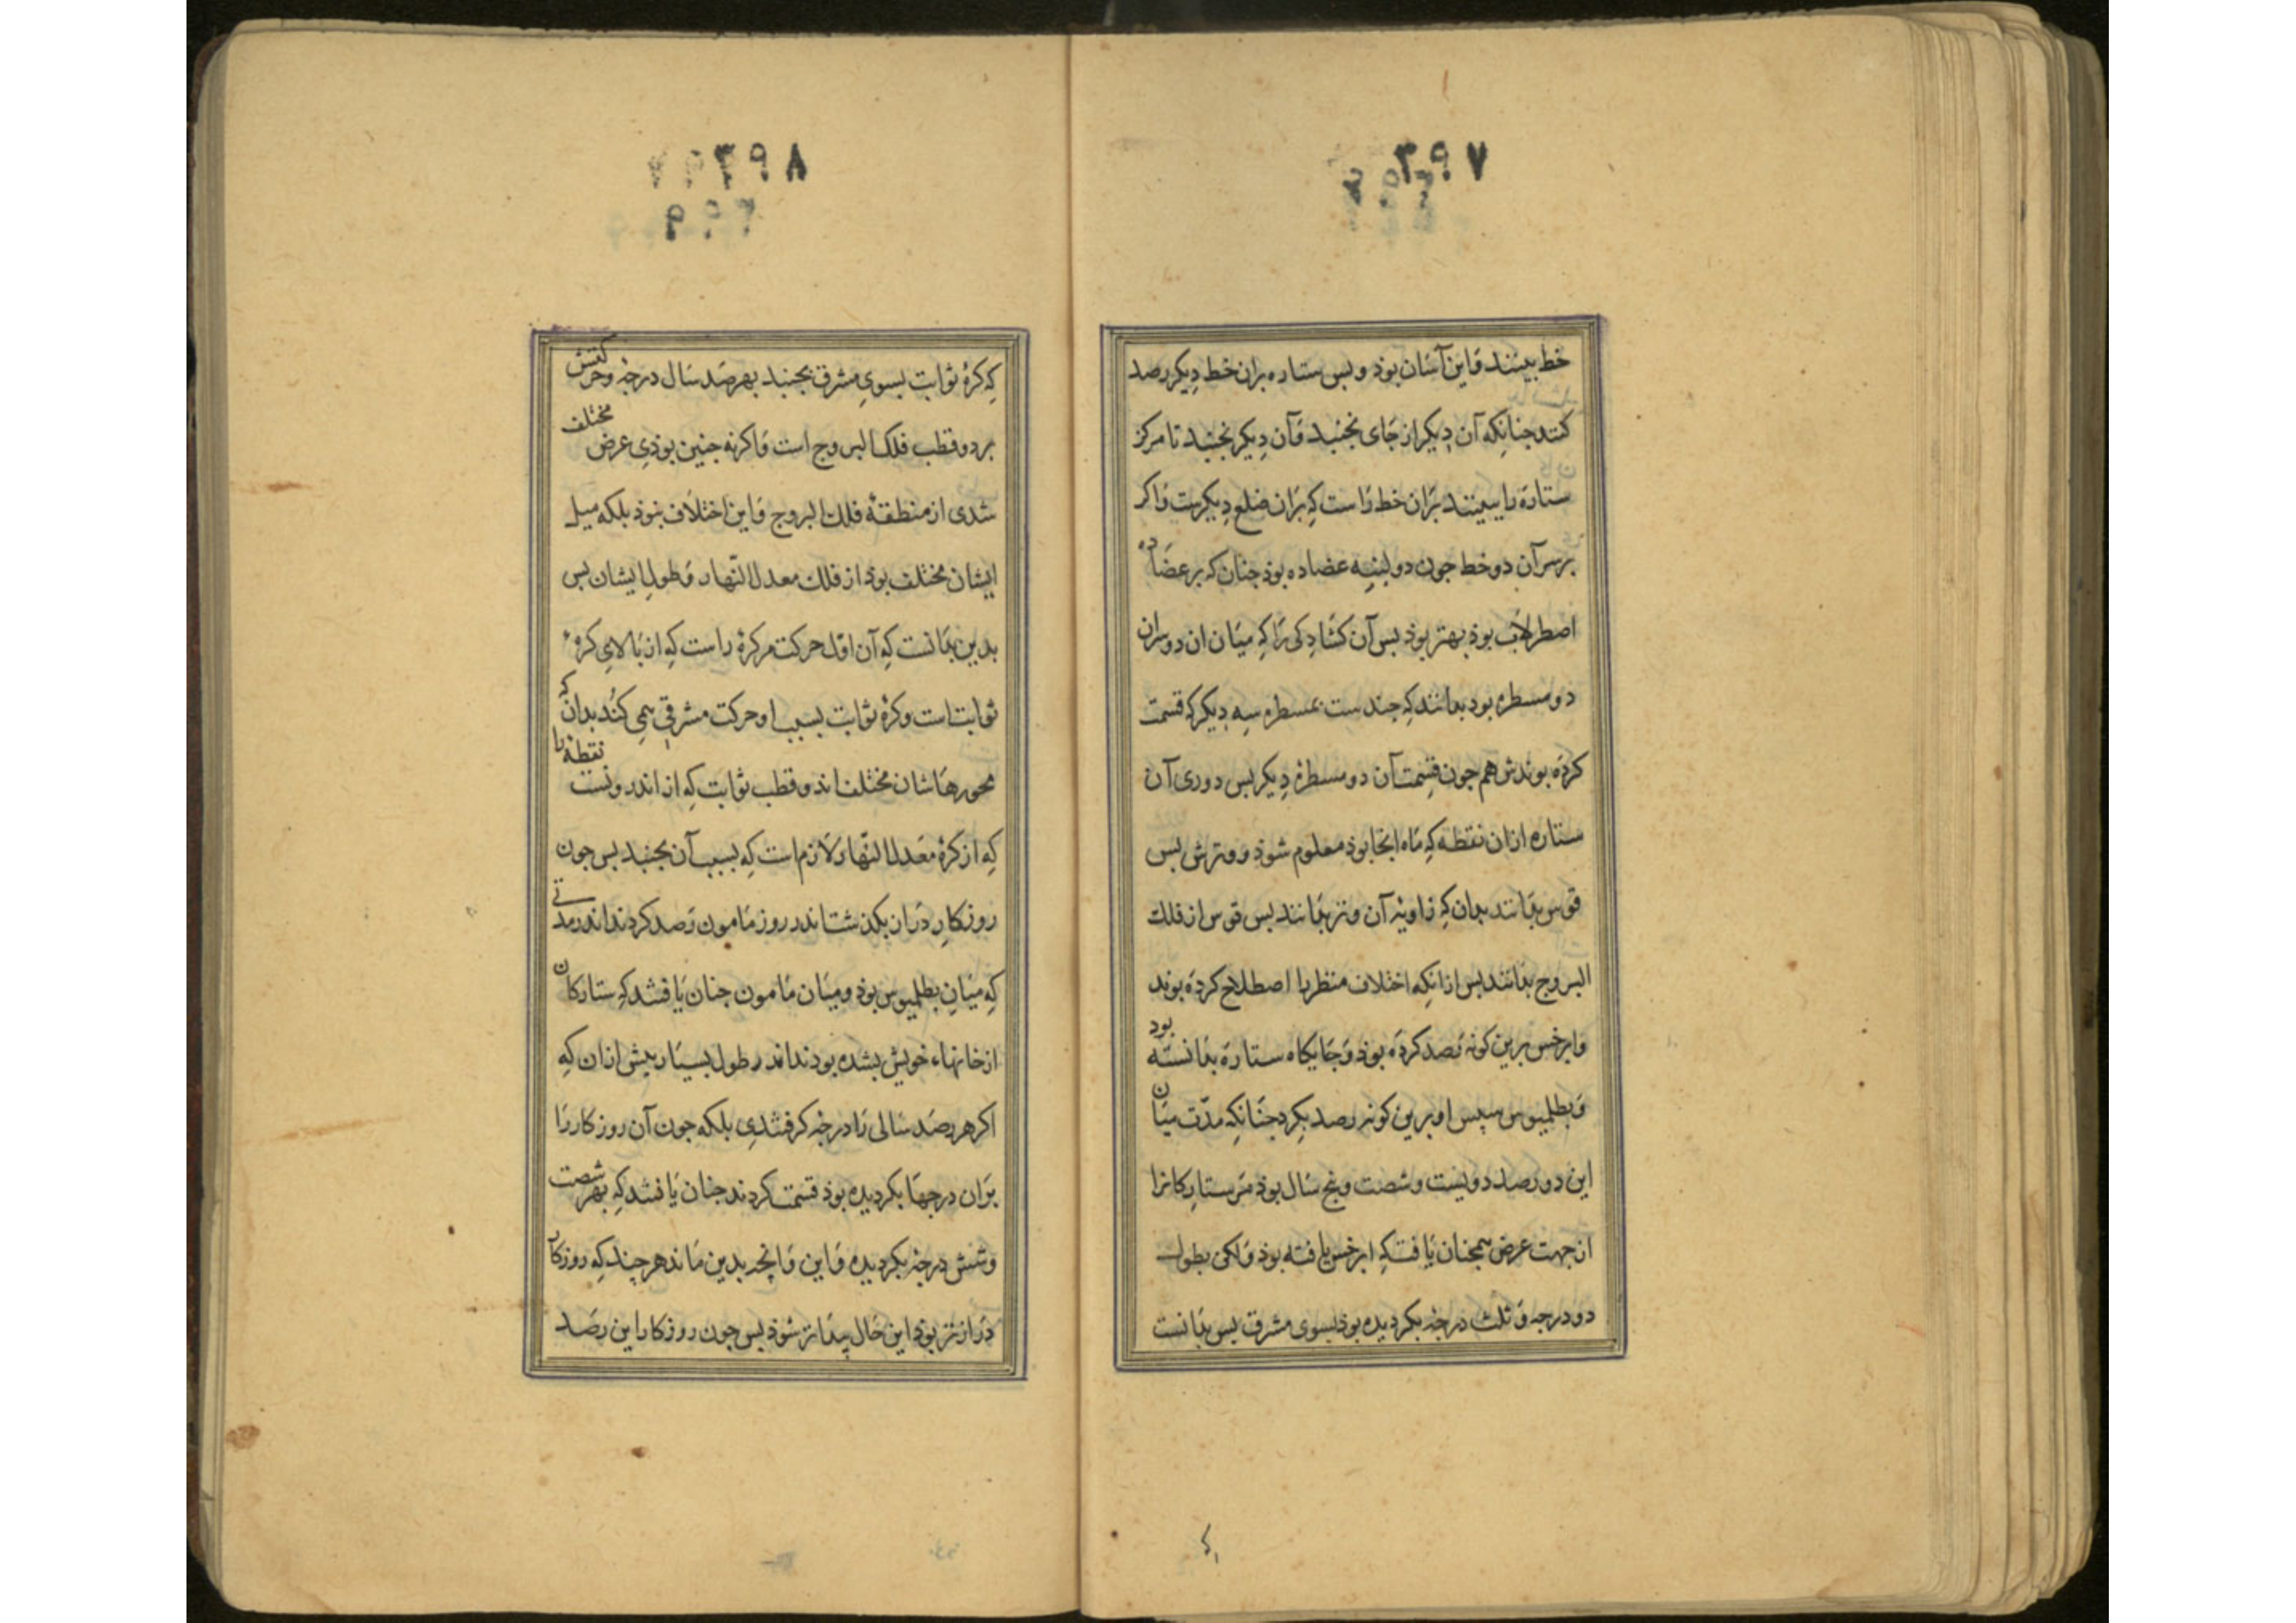 ۳۹۷
خط بینند واین آسان بوذ وبس ستاره بران خط دیکر رصد
کنند جنانکه آن دیکر از جای نجنبد وآن دیکر بجنبد تا مرکز
ستاره را ببینند بران خط راست که بران ضلع دیکرست واکر
برسر آن دو خط جون دو لبنه عضاده بوذ جنان که بر عضاده
اصطرلاب بوذ بهتر بوذ بس آن کشادکی را که میان ان دو سران
دو مسطره بود بدانند که جندست بمسطره سه دیکر که قسمت
کرده بوندش هم جون قسمت آن دو مسطرهٔ دیکر بس دوری آن
ستاره ازان نقطه که ماه انجا بوذ معلوم شوذ ووترش بس
قوس بدانند بدان که زاویهٔ آن وتر بدانند بس قوس از فلک
البروج بدانند بس ازانکه اختلاف منظر را اصطلاح کرده بوند
وابرخس برین کونه رصد کرده بوذ وجایکاه ستاره بدانسته بود
وبطلمیوس سپس او برین کونه رصد بکرد جنانکه مدّت میان
این دو رصد دویست وشصت وبنج سال بوذ مر ستارکانرا
از جهت عرض همجنان یافت که ابرخس یافته بوذ ولکن بطول
دو درجه وثلث درجه بکردیده بوذ بسوی مشرق بس بدانست
۳۹۸
که کرهٔ ثوابت بسوی مشرق بجنبد بهر صد سال درجه وحرکتش
بر دو قطب فلک البروج است واکر نه جنین بوذی عرض مختلف
شدی از منطقهٔ فلک البروج واین اختلاف نبوذ بلکه میل
ایشان مختلف بوذ از فلک معدل النهار وطول ایشان بس
بدین بدانست که آن اول حرکت مر کرهٔ راست که از بالای کرهٔ
ثوابت است وکرهٔ ثوابت بسبب او حرکت مشرقی همی کند بدان که
محورهاشان مختلف اند وقطب ثوابت که از اندرونست نقطه را
که از کرهٔ معدل النهار ولازم است که بسبب آن بجنبد بس جون
روزکار دران بکذشت اندر روز مامون رصد کردند اندر مدتی
که میان بطلمیوس بوذ ومیان مامون جنان یافتند که ستارکان
از خانهاء خویش بشده بودند اندر طول بسیار بیش ازان که
اکر هر صد سالی را درجه کرفتندی بلکه جون آن روزکار را
بران درجها بکردیده بوذ قسمت کردند جنان یافتند که بهر شصت
وشش درجه بکردیده واین وآنجه بدین ماند هر جند که روزکار
درازتر بوذ این حال پیداتر شوذ بس جون روزکار این رصد